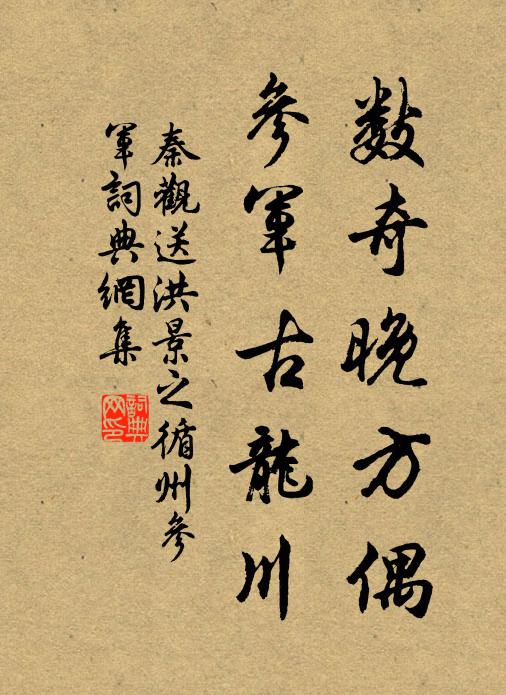 數奇晚方偶
參軍古龍川
秦觀送洪景之循州參
軍詞典網集
詞典
网印